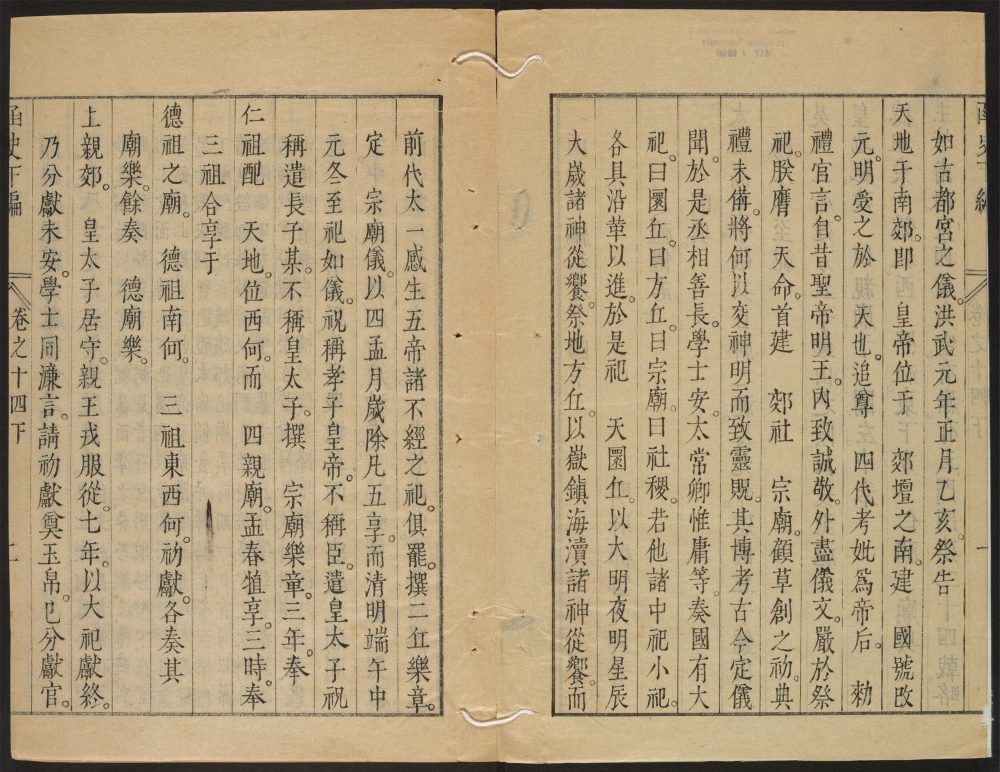 函史下編
如古都宮之儀。洪武元年正月乙亥。祭告
天地于南郊。卽　皇帝位于　郊壇之南。建　國號改
元。明受之於　天也。追尊　四代考妣爲帝后。　勑
禮官言。自昔聖帝明王。內致誠敬。外盡儀文。嚴於祭
祀。朕膺　天命。首建　郊社　宗廟。顧草創之初。典
禮未俻。將何以交神明而致靈貺。其博考古今定儀
聞。於是丞相善長。學士安。太常卿惟庸等。奏國有大
祀。曰圜丘。曰方丘。曰宗廟。曰社稷。若他諸中祀小祀。
各具沿革以進。於是祀　天圜丘。以大明夜明星辰
大歲諸神從饗。祭地方丘。以嶽鎮海瀆諸神從饗。而
前代太一感生五帝諸不經之祀。俱罷。撰二丘樂章。
定　宗廟儀。以四孟月歲除凡五享。而清明端午中
元冬至祀如儀。祝稱孝子皇帝。不稱臣。遣皇太子祝
稱遣長子某。不稱皇太子。撰　宗廟樂章。三年。奉
仁祖配　天地。位西向。而　四親廟。孟春犆享。三時。奉
三祖合享于
德祖之廟。　德祖南向。　三祖東西向。初獻。各奏其
廟樂。餘奏　德廟樂。
上親郊。　皇太子居守。親王戎服從。七年。以大祀獻終。
乃分獻未安。學士同濂言。請初獻奠玉帛。已分獻官。
函史下編
卷之十四下
二